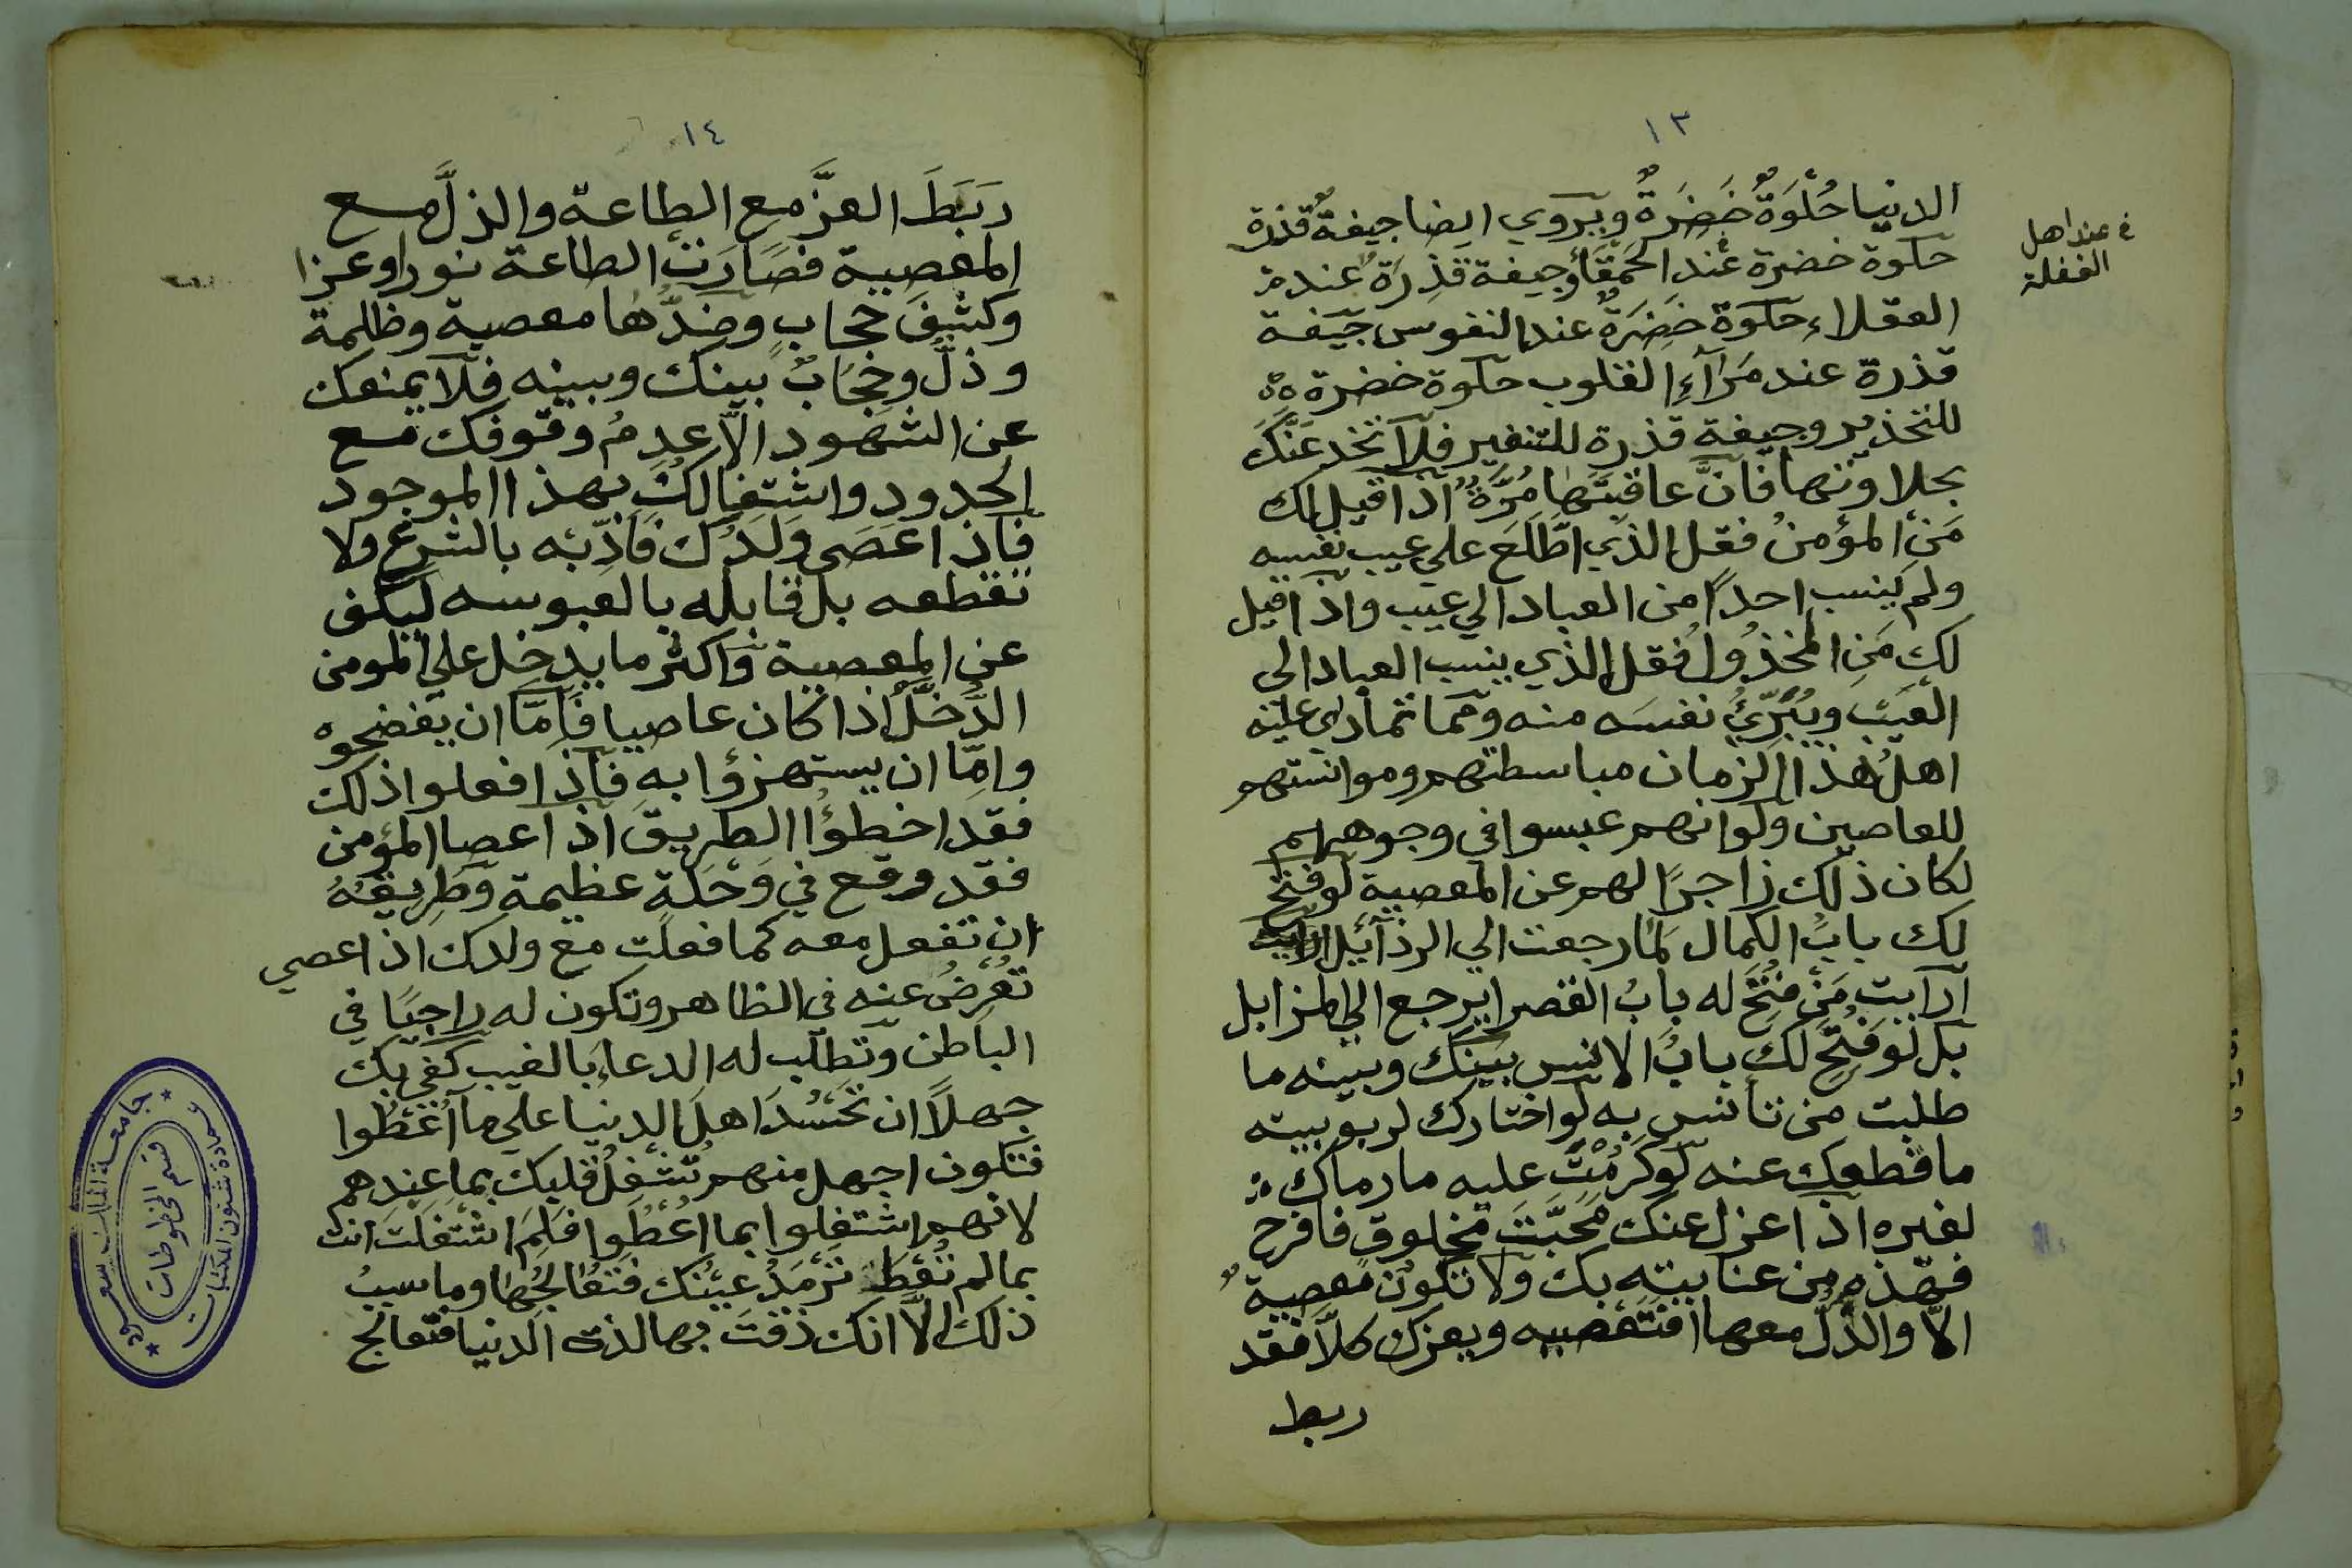 ١٣
الدنيا حُلْوَةٌ خَضِرَةٌ ويروي ايضا جيفةٌ قذرة
حلوة خضرة عند الحَمْقَاءِ وجيفة قذِرَة عند
العقلاء حلوة خَضِرَةٌ عند النفوس جيفة
قذرة عند مَرَآءِ القلوب حلوة خضرة
للتحذير وجيفة قذرة للتنفير فلا تخدعَنَّكَ
بحلاوتها فانَّ عاقبتَها مُرَّةٌ اذا قيل لك
مَن المؤمنُ فقل الذي اطَّلَعَ علي عيب نفسه
ولم ينسب احدًا من العباد الي عيب واذا قيل
لك مَنِ المخذُولُ فقل الذي ينسب العباد الى
العَيْبِ ويُبَرِّئُ نفسَه منه ومما تمادي عليه
اهلُ هذا الزمان مباسطتهم وموانستهم
للعاصين ولو انهم عبسوا في وجوههم
لكان ذلك زاجرًا لهم عن المعصية لو فُتِحَ
لك بابُ الكمال لما رجعت الي الرذآئل
ارايت مَن فُتِحَ له بابُ القصر ايرجع الي المزابل
بل لو فُتِحَ لك بابُ الانس بينك وبينه ما
طلبت من تأنس به لو اختارك لربوبيته
ما قطعك عنه لو كَرُمْتَ عليه ما رماك
لغيره اذا عزل عنك مَحَبَّتَ مخلوق فافرح
فهذه من عنايته بك ولا تكون معصيةٌ
الاّ والذلُّ معها افتَعْصيه ويعزك كلاَّ فقد
ربط
في عند اهل
الغفلة
١٤
رَبَطَ العزَّ مع الطاعة والذلَّ مع
المعصية فصَارَت الطاعة نورا وعزا
وكشِفَ حجاب وضدُّها معصية وظلمة
وذلٌّ وحِجَابٌ بينك وبينه فلا يمنعك
عن الشهود الاَّ عدمُ وقوفك مع
الحدود واشتغالك بهذا الموجود
فاذا عَصَى وَلَدُك فَاَدِّبْه بالشرع ولا
تقطعه بل قابله بالعبوسه ليكف
عن المعصية واكثر ما يدخل علي المومن
الدَّخَلُ اذا كان عاصيا فاِمَّا ان يفضحوه
واِمّا ان يستهزؤا به فاذا فعلوا ذلك
فقد اخطؤا الطريق اذا عصا المؤمن
فقد وقع في وَحْلَةٍ عظيمة وطريقهُ
ان تفعل معه كما فعلت مع ولدك اذا عصي
تُعْرِضُ عنه في الظاهر وتكون له راجيًا في
الباطن وتطلب له الدعاء بالغيب كفي بك
جهلاً ان تحْسُدَ اهل الدنيا علي ما اُعْطُوا
فتكون اجهل منهم تُشْغِلُ قلبك بما عندهم
لانهم اشتغلوا بما اُعْطُوا فلِمَ اشتغلت انت
بما لم تُعْطَ تَرْمَدُ عَيْنُك فتُعالجُها وما سببُ
ذلك الاَّ انك ذقت بها لذة الدنيا فتعالج
جامعة الملك سعود
عمادة شئون المكتبات
قسم المخطوطات